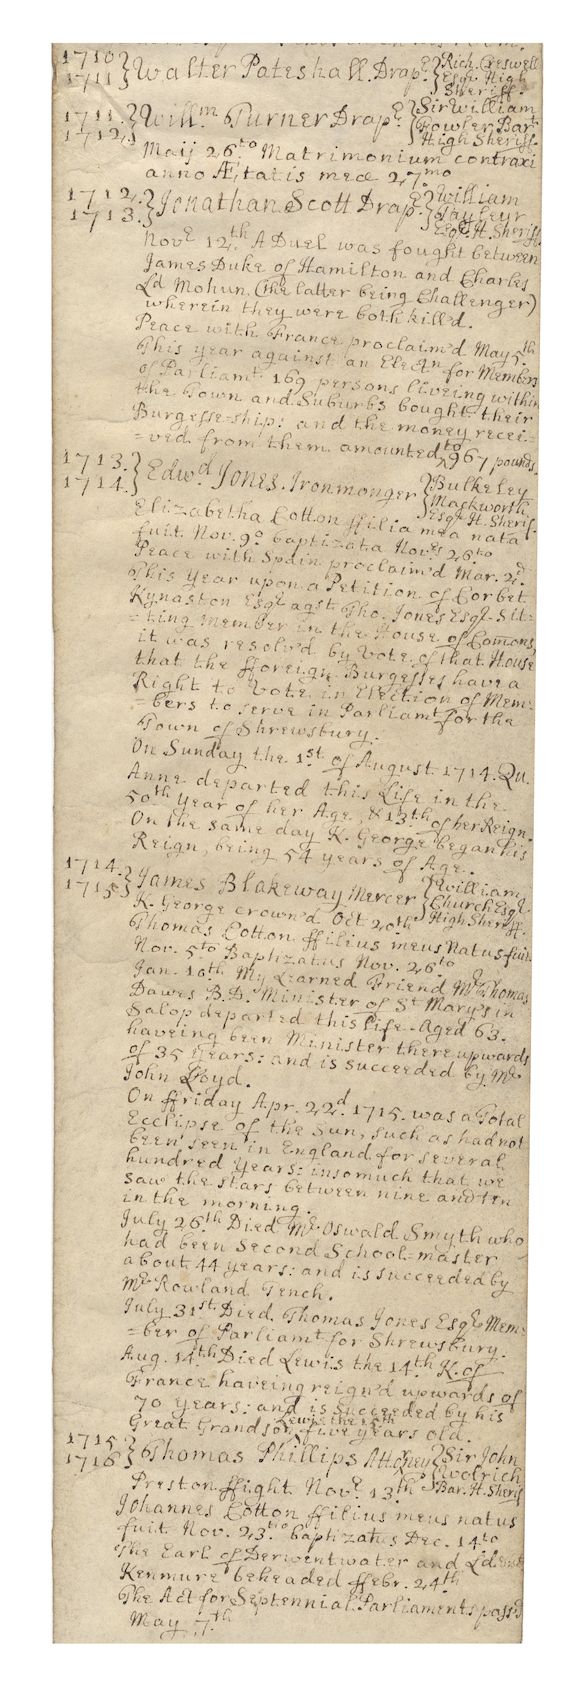 1710 } Walter Pateshall. Drapr. } Rich. Creswell
1711 } Esqr. High
Sheriff.
1711. } Willm. Turner Drapr. } Sir William
1712. } Fowler Bart.
High Sheriff.
Maij 26.to Matrimonium contraxi
anno Ætatis meæ 27.mo
1712. } Jonathan Scott Drapr. } William
1713. } Tayleur
Esqr. H. Sheriff.
Novr. 12th. A Duel was fought between
James Duke of Hamilton and Charles
Ld Mohun. (the latter being Challenger)
wherein they were both kill'd.
Peace with France proclaim'd May 5th
This year against an Electn. for Members
of Parliamt. 169 persons liveing within
the Town and Suburbs bought their
Burgesse-ship: and the money recei-
=ved from them amounted to 967 pounds.
1713. } Edwd. Jones. Ironmonger } Bulkeley
1714. } Mackworth.
Esqr. H. Sherif.
Elizabetha Cotton ffilia mea nata
fuit Nov. 9o baptizata Novrs 26to
Peace with Spain proclaim'd Mar. 2d.
This Year upon a Petition of Corbet
Kynaston Esqr. agst. Tho. Jones Esqr. Sit-
=ting Member in the House of Comons,
it was resolv'd by Vote of that House
that the fforeign Burgesses have a
Right to Vote in Election of Mem-
=bers to serve in Parliamt. for the
Town of Shrewsbury.
On Sunday the 1st. of August 1714. Qu.
Anne departed this Life in the
50th Year of her Age, & 13th. of her Reign.
On the same day K. George began his
Reign, being 54 years of Age.
1714. } James Blakeway Mercer } William
1715 } Church Esqr.
High Sheriff.
K. George crown'd Oct 20th.
Thomas Cotton ffilius meus Natus fuit
Nov. 5to Baptizatus Nov. 26.to
Jan. 10th My Learned Friend Mr. Thomas
Dawes B.D. Minister of St Mary's in
Salop departed this Life. Aged 63.
haveing been Minister there upwards
of 35 Years: and is succeeded by Mr.
John Lloyd.
On ffriday Apr. 22d. 1715. was a Total
Ecclipse of the Sun, such as had not
been seen in England for several
hundred Years: insomuch that we
saw the stars between nine and ten
in the morning.
July 26th Died Mr. Oswald Smyth who
had been Second School=master
about 44 years: and is succeeded by
Mr. Rowland Tench.
July 31st. Died. Thomas Jones Esqr. Mem-
=ber of Parliamt. for Shrewsbury.
Aug. 14th Died Lewis the 14th K. of
France haveing reign'd upwards of
70 years: and is succeeded by his
Great Grandson Lewis the 15th five years old.
1715 } Thomas Phillips Attorney } Sir John
1716 } Woolrich
Bar. H. Sherif
Preston ffight Novr. 13th
Johannes Cotton ffilius meus natus
fuit Nov. 23.tio baptizatus Dec. 14.to
The Earl of Derwentwater and Ld.
Kenmure beheaded ffebr. 24th
The Act for Septennial Parliaments pass'd
May 7th.